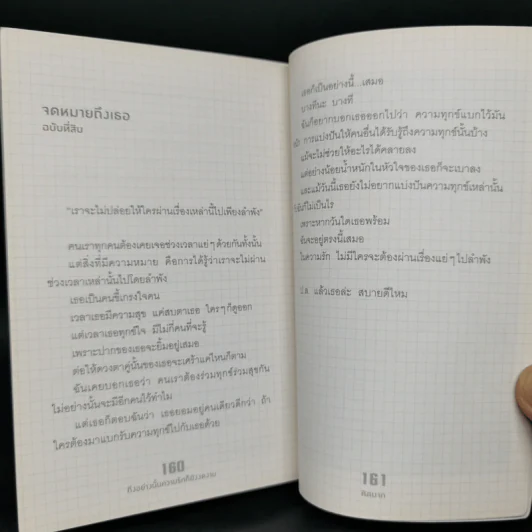 จดหมายถึงเธอ
ฉบับที่สิบ
"เราจะไม่ปล่อยให้ใครผ่านเรื่องเหล่านี้ไปเพียงลำพัง"
คนเราทุกคนต้องเคยเจอช่วงเวลาแย่ๆ ด้วยกันทั้งนั้น
แต่สิ่งที่มีความหมาย คือการได้รู้ว่าเราจะไม่ผ่าน
ช่วงเวลาเหล่านั้นไปโดยลำพัง
เธอเป็นคนขี้เกรงใจคน
เวลาเธอมีความสุข แค่สบตาเธอ ใครๆ ก็ดูออก
แต่เวลาเธอทุกข์ใจ มีไม่กี่คนที่จะรู้
เพราะปากของเธอจะยิ้มอยู่เสมอ
ต่อให้ดวงตาคู่นั้นของเธอจะเศร้าแค่ไหนก็ตาม
ฉันเคยบอกเธอว่า คนเราต้องร่วมทุกข์ร่วมสุขกัน
ไม่อย่างนั้นจะมีอีกคนไว้ทำไม
แต่เธอก็ตอบฉันว่า เธอยอมอยู่คนเดียวดีกว่า ถ้า
ใครต้องมาแบกรับความทุกข์ไปกับเธอด้วย
160
เธอก็เป็นอย่างนี้...เสมอ
บางทีนะ บางที
ฉันก็อยากบอกเธอออกไปว่า ความทุกข์แบกไว้มัน
การแบ่งปันให้คนอื่นได้รับรู้ถึงความทุกข์นั้นบ้าง
แม้จะไม่ช่วยให้อะไรได้คลายลง
แต่อย่างน้อยน้ำหนักในหัวใจของเธอก็จะเบาลง
และแม้วันนี้เธอยังไม่อยากแบ่งปันความทุกข์เหล่านั้น
ก็ไม่เป็นไร
เพราะหากวันใดเธอพร้อม
ฉันจะอยู่ตรงนี้เสมอ
ในความรัก ไม่มีใครจะต้องผ่านเรื่องแย่ๆ ไปลำพัง
ป.ล. แล้วเธอล่ะ สบายดีไหม
161